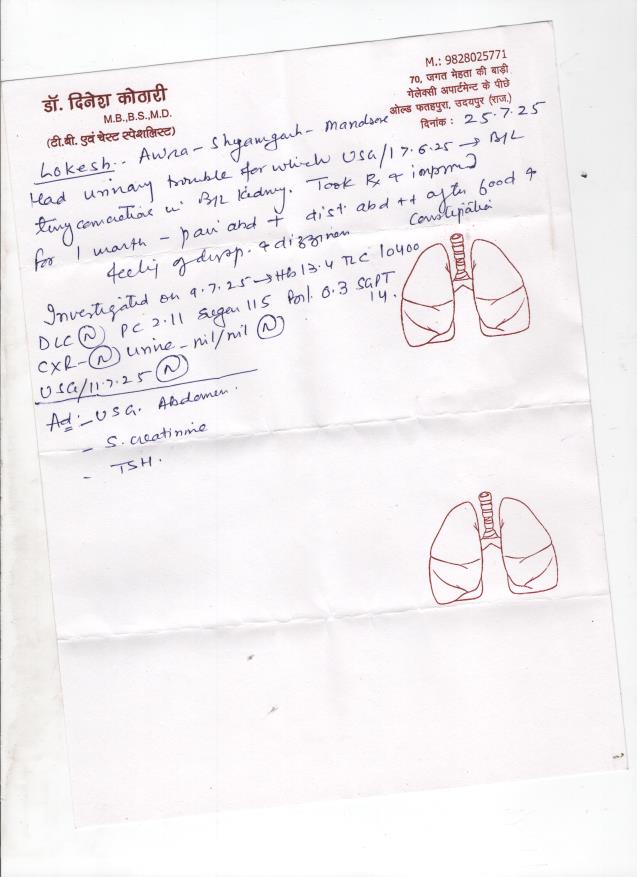 डॉ. दिनेश कोठारी
M.B.,B.S.,M.D.
(टी.बी. एवं चेस्ट स्पेशलिस्ट)
M.: 9828025771
70, जगत मेहता की बाड़ी
गेलेक्सी अपार्टमेन्ट के पीछे
ओल्ड फतहपुरा, उदयपुर (राज.)
दिनांक : 25.7.25
Lokesh - Awra - Shyamgarh - Mandsore
Had urinary trouble for which USG/17.6.25 → B/L
tiny concretions in B/L kidney. Took Rx & improved
for 1 month - pain abd + dist. abd ++ after food &
constipation
feeling of & dizziness
Investigated on 9.7.25 → Hb 13.4 TLC 10400
DLC (N) PC 2.11 Sugar 115 0.3 SGPT
14.
CXR - (N) Urine - nil/nil (N)
USG/11.7.25 (N)
Ad :- USG. Abdomen.
- S. creatinine
- TSH.